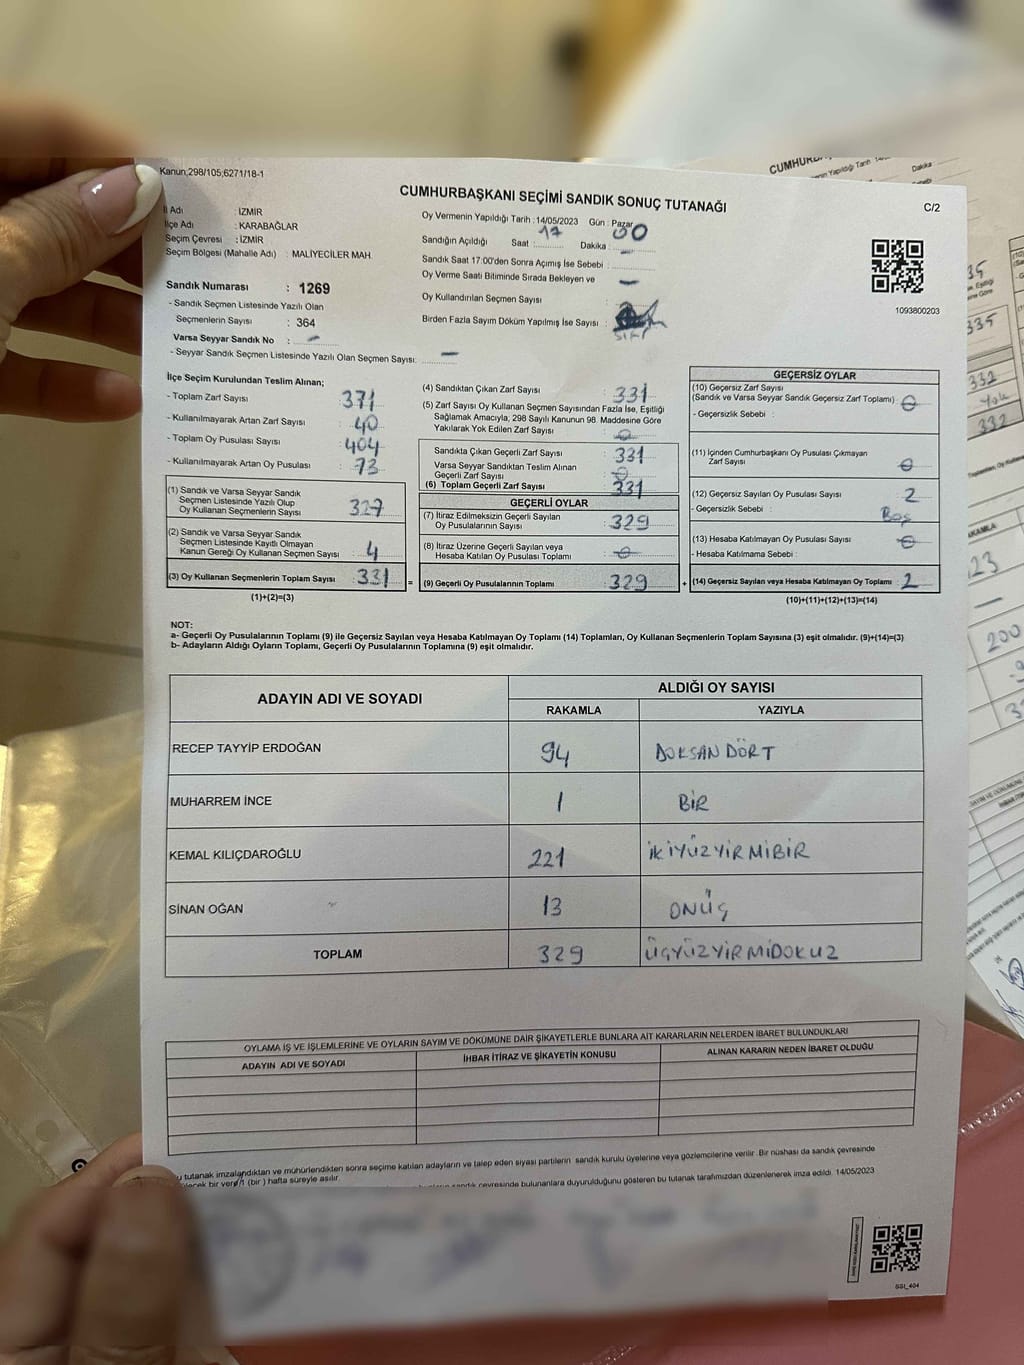 Kanun;298/105;6271/18-1
CUMHURBAŞKANI SEÇİMİ SANDIK SONUÇ TUTANAĞI
C/2
İl Adı : İZMİR
İlçe Adı : KARABAĞLAR
Seçim Çevresi : İZMİR
Seçim Bölgesi (Mahalle Adı) : MALİYECİLER MAH.
Oy Vermenin Yapıldığı Tarih : 14/05/2023 Gün : Pazar
Sandığın Açıldığı Saat : 17 Dakika : 00
Sandık Saat 17:00'den Sonra Açımış İse Sebebi : —
Oy Verme Saati Bitiminde Sırada Bekleyen ve
Oy Kullandırılan Seçmen Sayısı : —
Birden Fazla Sayım Döküm Yapılmış İse Sayısı :
1093800203
Sandık Numarası : 1269
- Sandık Seçmen Listesinde Yazılı Olan
Seçmenlerin Sayısı : 364
Varsa Seyyar Sandık No : —
- Seyyar Sandık Seçmen Listesinde Yazılı Olan Seçmen Sayısı: —
İlçe Seçim Kurulundan Teslim Alınan;
- Toplam Zarf Sayısı : 371
- Kullanılmayarak Artan Zarf Sayısı : 40
- Toplam Oy Pusulası Sayısı : 404
- Kullanılmayarak Artan Oy Pusulası : 73
(1) Sandık ve Varsa Seyyar Sandık
Seçmen Listesinde Yazılı Olup
Oy Kullanan Seçmenlerin Sayısı : 327
(2) Sandık ve Varsa Seyyar Sandık
Seçmen Listesinde Kayıtlı Olmayan
Kanun Gereği Oy Kullanan Seçmen Sayısı : 4
(3) Oy Kullanan Seçmenlerin Toplam Sayısı : 331
(1)+(2)=(3)
(4) Sandıktan Çıkan Zarf Sayısı : 331
(5) Zarf Sayısı Oy Kullanan Seçmen Sayısından Fazla İse, Eşitliği
Sağlamak Amacıyla, 298 Sayılı Kanunun 98. Maddesine Göre
Yakılarak Yok Edilen Zarf Sayısı : 0
Sandıkta Çıkan Geçerli Zarf Sayısı : 331
Varsa Seyyar Sandıktan Teslim Alınan
Geçerli Zarf Sayısı : 0
(6) Toplam Geçerli Zarf Sayısı : 331
GEÇERLİ OYLAR
(7) İtiraz Edilmeksizin Geçerli Sayılan
Oy Pusulalarının Sayısı : 329
(8) İtiraz Üzerine Geçerli Sayılan veya
Hesaba Katılan Oy Pusulası Toplamı : 0
= (9) Geçerli Oy Pusulalarının Toplamı : 329
GEÇERSİZ OYLAR
(10) Geçersiz Zarf Sayısı
(Sandık ve Varsa Seyyar Sandık Geçersiz Zarf Toplamı) : 0
- Geçersizlik Sebebi :
(11) İçinden Cumhurbaşkanı Oy Pusulası Çıkmayan
Zarf Sayısı : 0
(12) Geçersiz Sayılan Oy Pusulası Sayısı : 2
- Geçersizlik Sebebi : Boş
(13) Hesaba Katılmayan Oy Pusulası Sayısı : 0
- Hesaba Katılmama Sebebi :
+ (14) Geçersiz Sayılan veya Hesaba Katılmayan Oy Toplamı : 2
(10)+(11)+(12)+(13)=(14)
NOT:
a- Geçerli Oy Pusulalarının Toplamı (9) ile Geçersiz Sayılan veya Hesaba Katılmayan Oy Toplamı (14) Toplamları, Oy Kullanan Seçmenlerin Toplam Sayısına (3) eşit olmalıdır. (9)+(14)=(3)
b- Adayların Aldığı Oyların Toplamı, Geçerli Oy Pusulalarının Toplamına (9) eşit olmalıdır.
ADAYIN ADI VE SOYADI
ALDIĞI OY SAYISI
RAKAMLA YAZIYLA
RECEP TAYYİP ERDOĞAN 94 DOKSAN DÖRT
MUHARREM İNCE 1 BİR
KEMAL KILIÇDAROĞLU 221 İKİYÜZYİRMİBİR
SİNAN OĞAN 13 ONÜÇ
TOPLAM 329 ÜÇYÜZYİRMİDOKUZ
OYLAMA İŞ VE İŞLEMLERİNE VE OYLARIN SAYIM VE DÖKÜMÜNE DAİR ŞİKAYETLERLE BUNLARA AİT KARARLARIN NELERDEN İBARET BULUNDUKLARI
ADAYIN ADI VE SOYADI
İHBAR İTİRAZ VE ŞİKAYETİN KONUSU
ALINAN KARARIN NEDEN İBARET OLDUĞU
tutanak imzalandıktan ve mühürlendikten sonra seçime katılan adayların ve talep eden siyasi partilerin sandık kurulu üyelerine veya gözlemcilerine verilir. Bir nüshası da sandık çevresinde
bir (bir) hafta süreyle asılır.
sandık çevresinde bulunanlara duyurulduğunu gösteren bu tutanak tarafımızdan düzenlenerek imza edildi. 14/05/2023
SSI_404
CUMHUR
nin Yapıldığı Tarih
Dakika
335
332
Yok
332
200